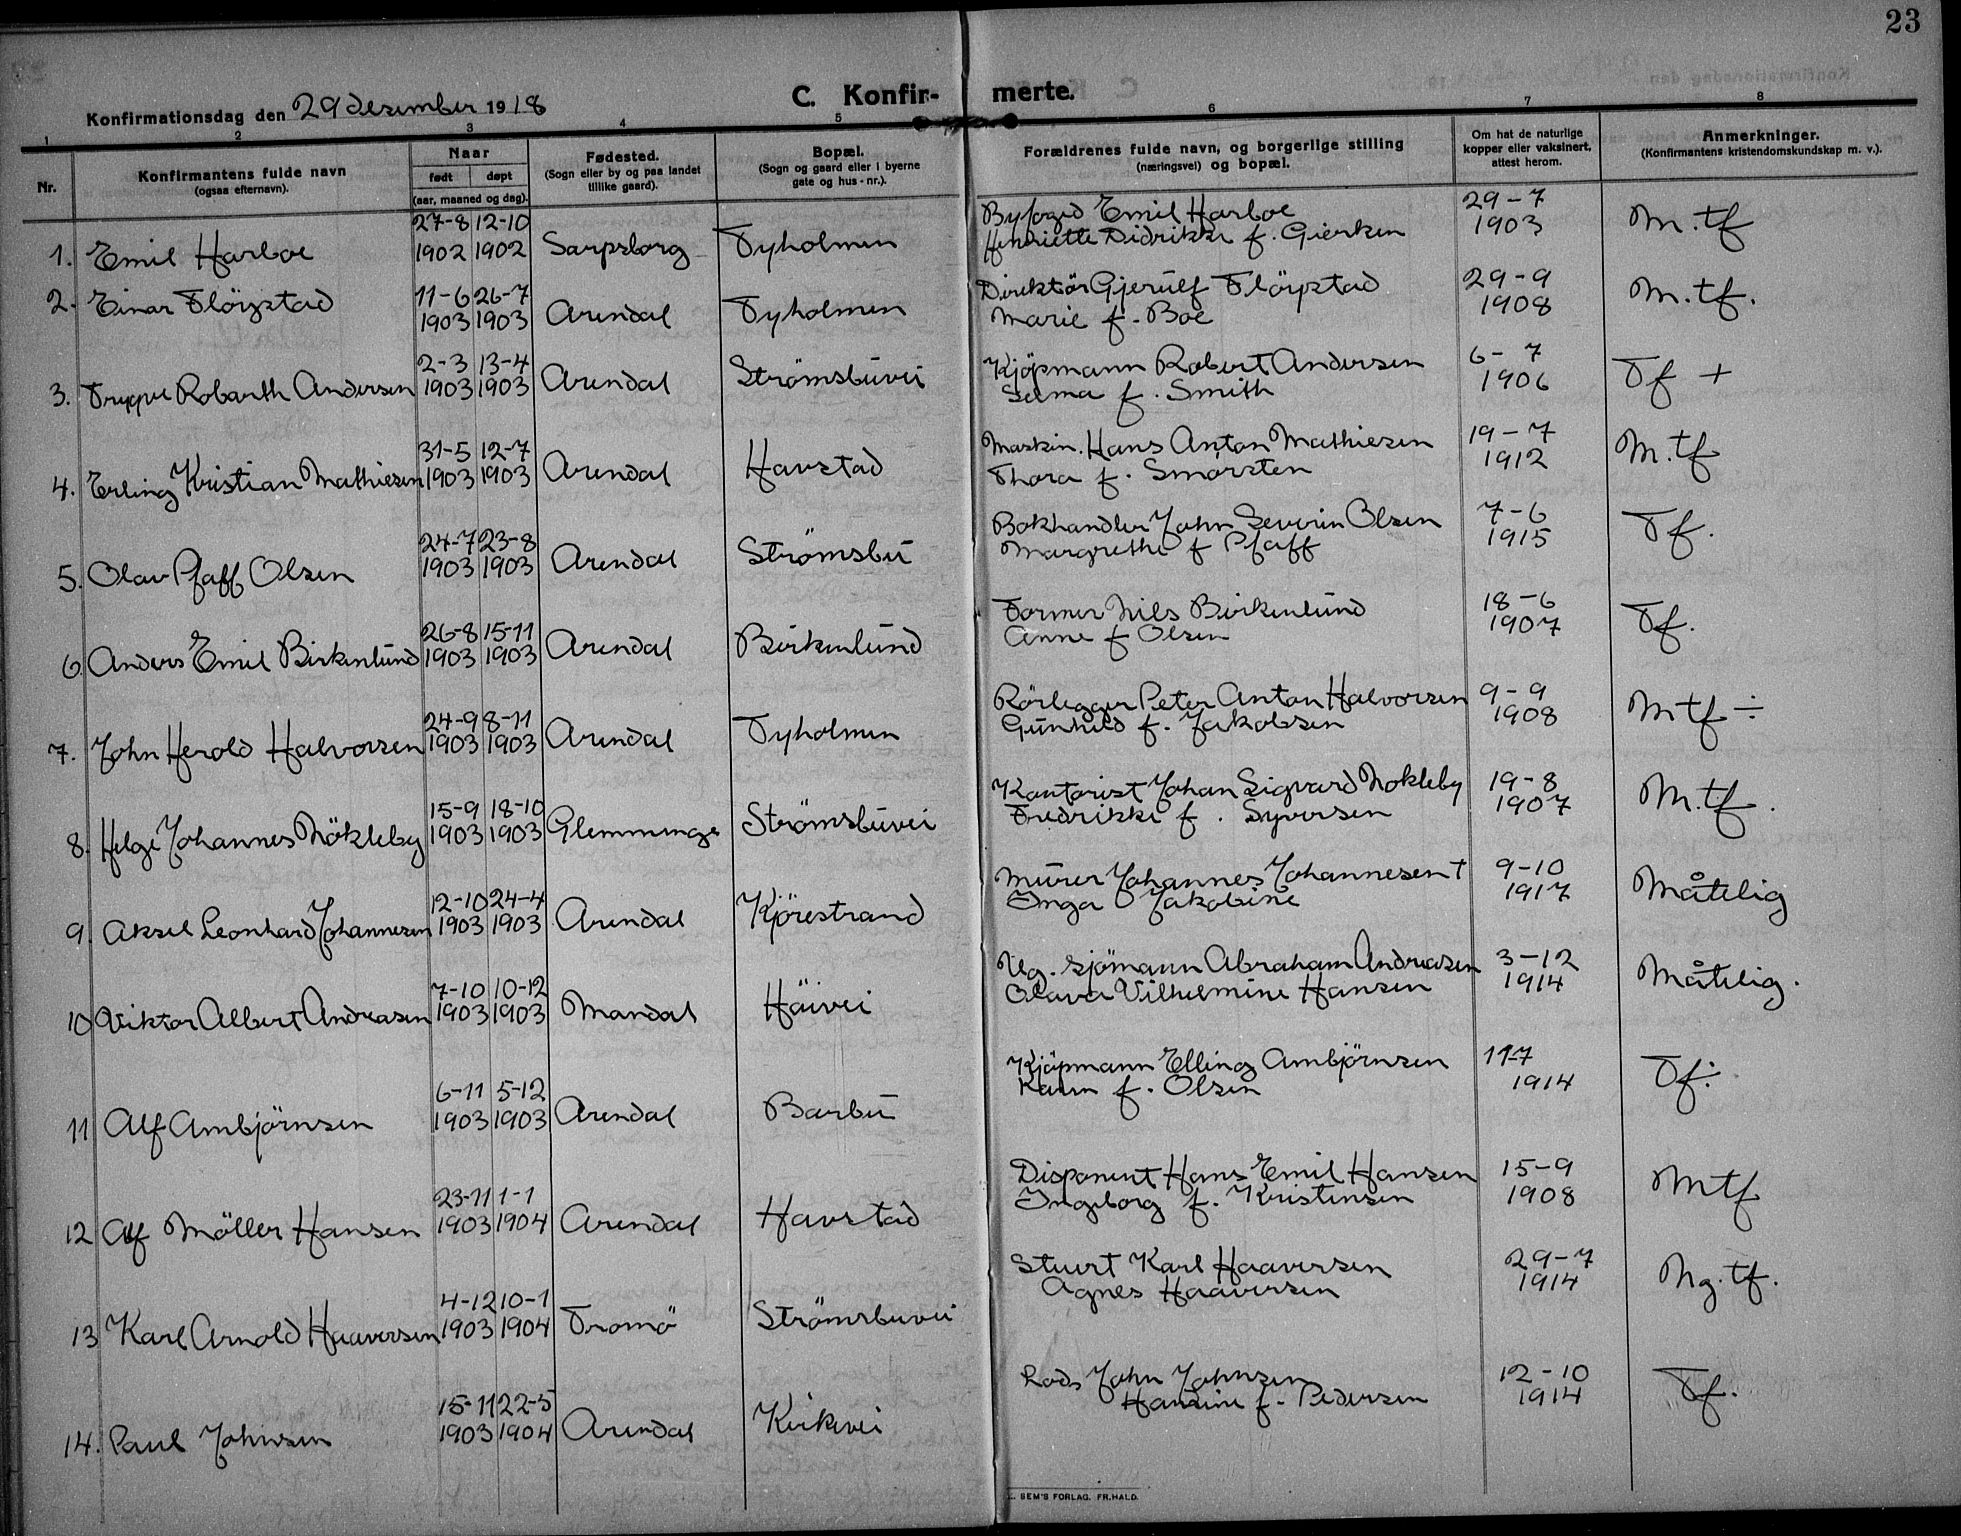 23
Konfirmationsdag den 29 desember 1918
C. Konfir- merte.
1 2 3 4 5 6 7 8
Nr.
Konfirmantens fulde navn
(ogsaa efternavn).
Naar
født døpt
(aar, maaned og dag).
Fødested.
(Sogn eller by og paa landet
tillike gaard).
Bopæl.
(Sogn og gaard eller i byerne
gate og hus-nr.).
Forældrenes fulde navn, og borgerlige stilling
(næringsvei) og bopæl.
Om hat de naturlige
kopper eller vaksinert,
attest herom.
Anmerkninger.
(Konfirmantens kristendomskundskap m. v.).
27-8 12-10 Byfoged Emil Harboe 29-7
1. Emil Harboe 1902 1902 Sarpsborg Tyholmen Henriette Didrikke f. Gierken 1903 M.tf
11-6 26-7 Direktör Gjerulf Flöystad 29-9
2. Einar Flöystad 1903 1903 Arendal Tyholmen Marie f. Boe 1908 M.tf.
2-3 13-4 Kjöpmann Robert Andersen 6-7
3. Trygve Robarth Andersen 1903 1903 Arendal Strömsbuvei Selma f. Smith 1906 Tf +
31-5 12-7 Maskin. Hans Anton Mathiesen 19-7
4. Erling Kristian Mathiesen 1903 1903 Arendal Havstad Thora f. Smørsten 1912 M.tf
24-7 23-8 Bokhandler John Severin Olsen 7-6
5. Olav Pfaff Olsen 1903 1903 Arendal Strömsbu Margrethe f Pfaff 1915 Tf.
26-8 15-11 Former Nils Birkenlund 18-6
6. Anders Emil Birkenlund 1903 1903 Arendal Birkenlund Anne f Olsen 1907 Tf.
24-9 8-11 Rörlegger Peter Anton Halvorsen 9-9
7. John Herold Halvorsen 1903 1903 Arendal Tyholmen Gunhild f. Jakobsen 1908 Mtf ÷
15-9 18-10 Kontorist Johan Sigvard Nokleby 19-8
8. Helge Johannes Nökleby 1903 1903 Glemminge Strömsbuvei Fredrikke f. Syversen 1907 M.tf.
12-10 24-4 Murer Johannes Johannesen † 9-10
9. Aksel Leonhard Johannesen 1903 1903 Arendal Kjörestrand Inga Jakobine 1917 Måtelig
7-10 10-12 Ug. sjömann Abraham Andreasen 3-12
10 Viktor Albert Andreasen 1903 1903 Mandal Höivei Olava Vilhelmine Hansen 1914 Måtelig.
6-11 5-12 Kjöpmann Elling Ambjörnsen 11-7
11 Alf Ambjörnsen 1903 1903 Arendal Barbu Karen f. Olsen 1914 Tf ÷
23-11 1-1 Disponent Hans Emil Hansen 15-9
12 Alf Möller Hansen 1903 1904 Arendal Havstad Ingeborg f. Kristensen 1908 Mtf
4-12 10-1 Stuert Karl Haaversen 29-7
13 Karl Arnold Haaversen 1903 1904 Tromö Strömsbuvei Agnes Haaversen 1914 Ng.tf.
15-11 22-5 Lods John Johnsen 12-10
14. Paul Johnsen 1903 1904 Arendal Kirkevei Hansine f. Pedersen 1914 Tf.
SEM'S FORLAG. FR.HALD.